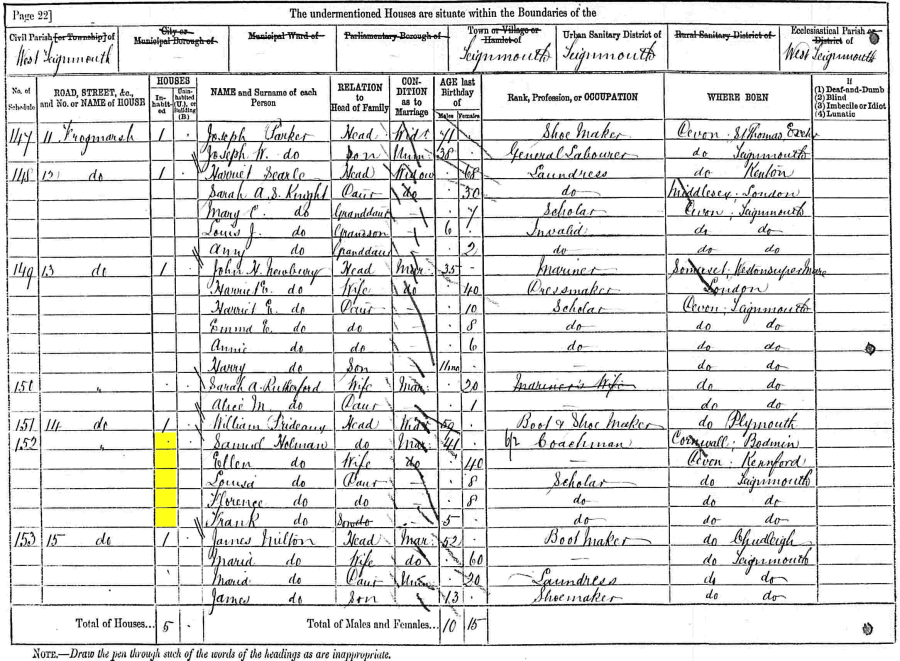 Page 22] The undermentioned Houses are situate within the Boundaries of the
Civil Parish [or Township] of West Teignmouth | City or Municipal Borough of | Municipal Ward of | Parliamentary Borough of | Town or Village or Hamlet of Teignmouth | Urban Sanitary District of Teignmouth | Rural Sanitary District of | Ecclesiastical Parish or District of West Teignmouth
No. of Schedule | ROAD, STREET, &c., and No. or NAME of HOUSE | HOUSES Inhabited | Uninhabited (U.), or Building (B) | NAME and Surname of each Person | RELATION to Head of Family | CONDITION as to Marriage | AGE last Birthday of Males | Females | Rank, Profession, or OCCUPATION | WHERE BORN | If (1) Deaf-and-Dumb (2) Blind (3) Imbecile or Idiot (4) Lunatic
147 | 11 Frogmarsh | 1 | Joseph Parker | Head | Widr | 71 | Shoe Maker | Devon; St Thomas Exeter
Joseph W. do | Son | Unm | 38 | General Labourer | do Teignmouth
148 | 12 do | 1 | Harriet Searle | Head | Widow | 68 | Laundress | do Kenton
Sarah A. S. Knight | Daur | do | 30 | do | Middlesex; London
Mary C. do | Granddaur | 7 | Scholar | Devon; Teignmouth
Louis J. do | Grandson | 6 | Invalid | do do
Amy do | Granddaur | 2 | do | do do
149 | 13 do | 1 | John H. Newbury | Head | Mar | 35 | Mariner | Somerset; Weston super Mare
Harriet E. do | Wife | do | 40 | Dressmaker | London
Harriet E. do | Daur | 10 | Scholar | Devon; Teignmouth
Emma E. do | do | 8 | do | do do
Annie do | do | 6 | do | do do
Harry do | Son | 11mo | do do
150 | " | Sarah A. Rutherford | Wife | Mar | 20 | Mariner's Wife | do do
Alice M. do | Daur | 1 | do do
151 | 14 do | 1 | William Prideaux | Head | Widr | 50 | Boot & Shoe Maker | do Plymouth
152 | " | Samuel Holman | do | Mar | 41 | Coachman | Cornwall; Bodmin
Ellen do | Wife | do | 40 | Devon; Kennford
Louisa do | Daur | 8 | Scholar | do Teignmouth
Florence do | do | 8 | do | do do
Frank do | Son do | 5 | do | do do
153 | 15 do | 1 | James Milton | Head | Mar | 52 | Boot Maker | do Chudleigh
Maria do | Wife | do | 60 | do Teignmouth
Maria do | Daur | Unm | 20 | Laundress | do do
James do | Son | 13 | Shoemaker | do do
Total of Houses... 5 | Total of Males and Females... 10 | 15
NOTE.—Draw the pen through such of the words of the headings as are inappropriate.